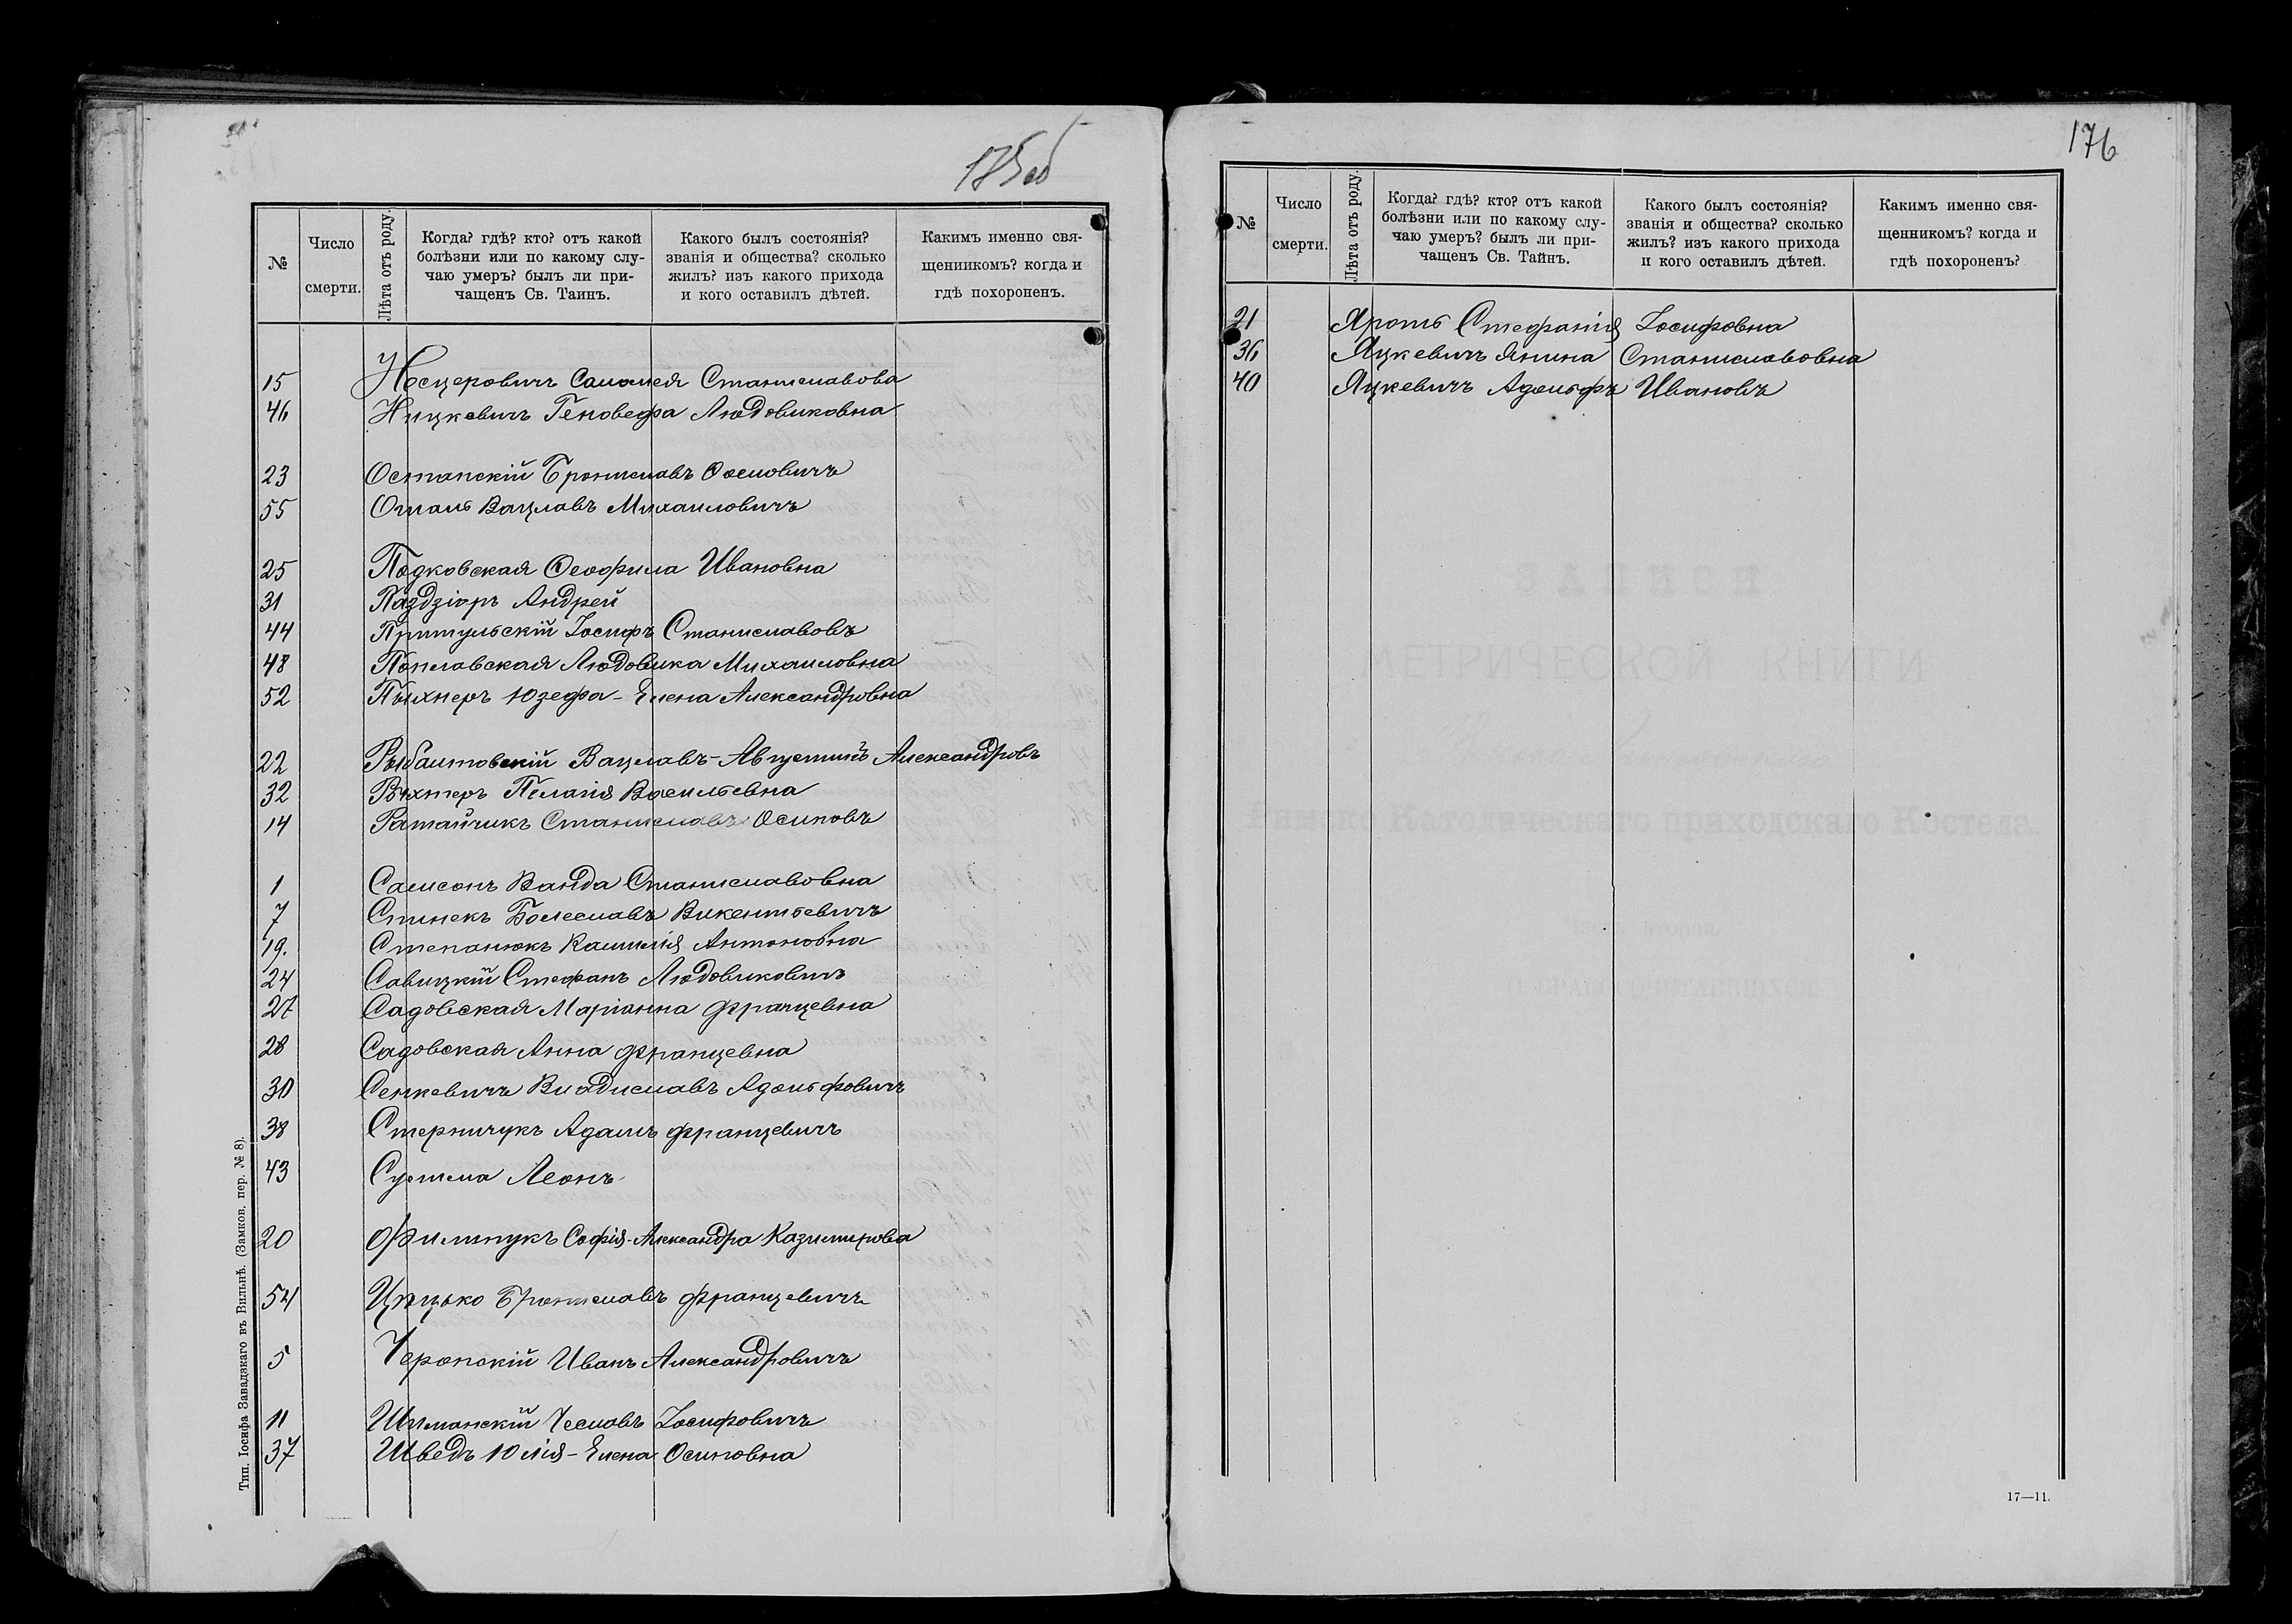 175 об
№
Число смерти.
Лѣта отъ роду.
Когда? гдѣ? кто? отъ какой
болѣзни или по какому слу-
чаю умеръ? былъ ли при-
чащенъ Св. Таинъ.
Какого былъ состоянія?
званія и общества? сколько
жилъ? изъ какого прихода
и кого оставилъ дѣтей.
Какимъ именно свя-
щенникомъ? когда и
гдѣ похороненъ.
15 Несцеровичъ Саломея Станиславова
46 Ницкевичъ Геновефа Людовиковна
23 Остапскій Брониславъ
55 Вацлавъ Михаиловичъ
25 Подковская Ѳеофила Ивановна
31 Паздзіоръ Андрей
44 Притульскій Іосифъ Станиславовъ
48 Поплавская Людовика Михаиловна
52 Пыхнеръ Юзефа-Елена Александровна
22 Рыбалтовскій Вацлавъ-Августинъ Александровъ
32 Рыхтеръ Пелагія Васильевна
14 Ратайчикъ Станиславъ Осиповъ
1 Самсонъ Ванда Станиславовна
7 Спинекъ Болеславъ Викентьевичъ
19. Степанюкъ Камилія Антоновна
24 Савицкій Стефанъ Людовиковичъ
27 Садовская Маріанна Францевна
28 Садовская Анна Францевна
30 Сенкевичъ Владиславъ Адольфовичъ
38 Стерничукъ Адамъ Францевичъ
43 Леонъ
20 Филипукъ Софія-Александра Казимирова
54 Брониславъ Францевичъ
5 Черопскій Иванъ Александровичъ
11 Шиманскій Чеславъ Іосифовичъ
37 Шведъ Юлія-Елена Осиповна
Тип. Іосифа Завадзкаго въ Вильнѣ. (Замков. пер. № 8).
176
№
Число смерти.
Лѣта отъ роду.
Когда? гдѣ? кто? отъ какой
болѣзни или по какому слу-
чаю умеръ? былъ ли при-
чащенъ Св. Тайнъ.
Какого былъ состоянія?
званія и общества? сколько
жилъ? изъ какого прихода
и кого оставилъ дѣтей.
Какимъ именно свя-
щенникомъ? когда и
гдѣ похороненъ?
21 Яроть Стефанія Іосифовна
36 Яцкевичъ Янина Станиславовна
40 Яцкевичъ Адольфъ Ивановъ
17—11.